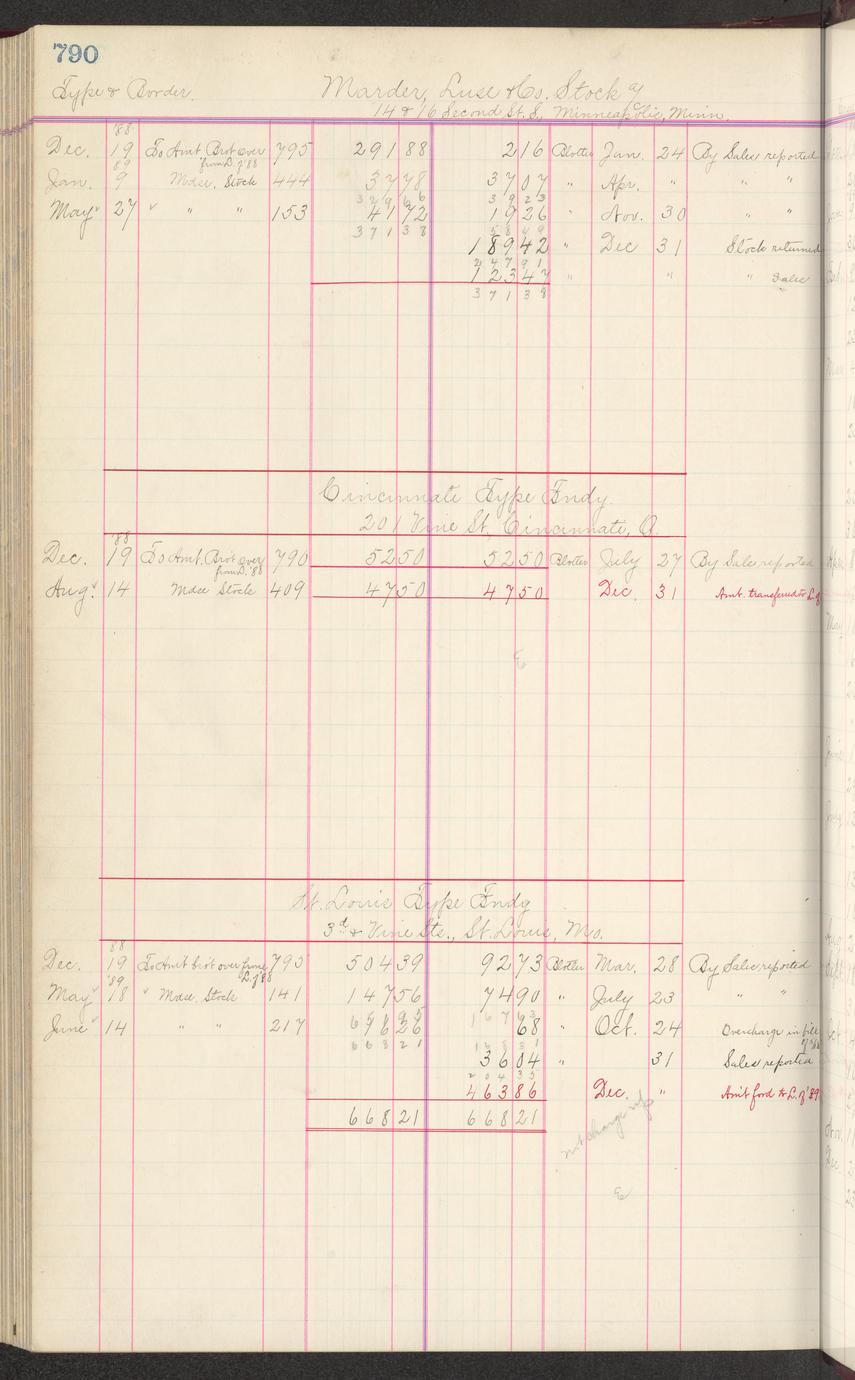 790
Type & Border. Marder, Luse & Co. Stock a/c
14 & 16 Second St. S., Minneapolis, Minn.
'88
Dec. 19 To Amt. Brot over from L. of '88 795 291 88 2 16 Blotter Jan. 24 By Sales reported
89
Jan. 9 Mdse. Stock 444 37 78 37 07 " Apr. " " "
329 66 39 23
May 27 " " " 153 41 72 19 26 " Nov. 30 " "
371 38 58 49
189 42 " Dec 31 Stock returned
247 91
123 47 " " " Sales
371 38
Cincinnate Type Fndy.
201 Vine St, Cincinnate, O.
'88
Dec. 19 To Amt. Bro't over from L. '88 790 52 50 52 50 Blotter July 27 By Sale reported
Aug. 14 Mdse Stock 409 47 50 47 50 Dec. 31 Amt. transferred to L. of
St. Louis Type Fndy
3d & Vine Sts., St. Louis, Mo.
88
Dec. 19 To Amt bro't over from L. of '88 795 504 39 92 73 Blotter Mar. 28 By Sales reported
'89
May 18 " Mdse. Stock 141 147 56 74 90 " July 23 " "
167 63
June 14 " " 217 16 26 68 " Oct. 24 Overcharge in bill
668 21 168 31
36 04 " 31 Sales reported
204 35
463 86 Dec. " Am't ford to L. of '89
668 21 668 21
not charge up